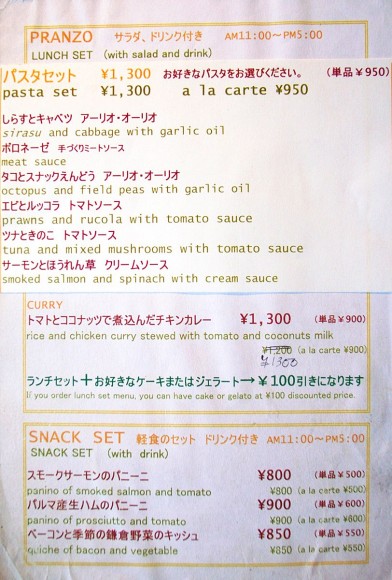 PRANZO サラダ、ドリンク付き AM11:00〜PM5:00
LUNCH SET (with salad and drink)
パスタセット ¥1,300 お好きなパスタをお選びください。 (単品¥950)
pasta set ¥1,300 a la carte ¥950
しらすとキャベツ アーリオ・オーリオ
sirasu and cabbage with garlic oil
ボロネーゼ 手づくりミートソース
meat sauce
タコとスナックえんどう アーリオ・オーリオ
octopus and field peas with garlic oil
エビとルッコラ トマトソース
prawns and rucola with tomato sauce
ツナときのこ トマトソース
tuna and mixed mushrooms with tomato sauce
サーモンとほうれん草 クリームソース
smoked salmon and spinach with cream sauce
CURRY
トマトとココナッツで煮込んだチキンカレー ¥1,300 (単品¥900)
rice and chicken curry stewed with tomato and coconuts milk
¥1,200 (a la carte ¥900)
¥1300
ランチセット+お好きなケーキまたはジェラート→¥100引きになります
If you order lunch set menu, you can have cake or gelato at ¥100 discounted price.
SNACK SET 軽食のセット ドリンク付き AM11:00〜PM5:00
SNACK SET (with drink)
スモークサーモンのパニーニ ¥800 (単品¥500)
panino of smoked salmon and tomato ¥800 (a la carte ¥500)
パルマ産生ハムのパニーニ ¥900 (単品¥600)
panino of prosciutto and tomato ¥900 (a la carte ¥600)
ベーコンと季節の鎌倉野菜のキッシュ ¥850 (単品¥550)
quiche of bacon and vegetable ¥850 (a la carte ¥550)